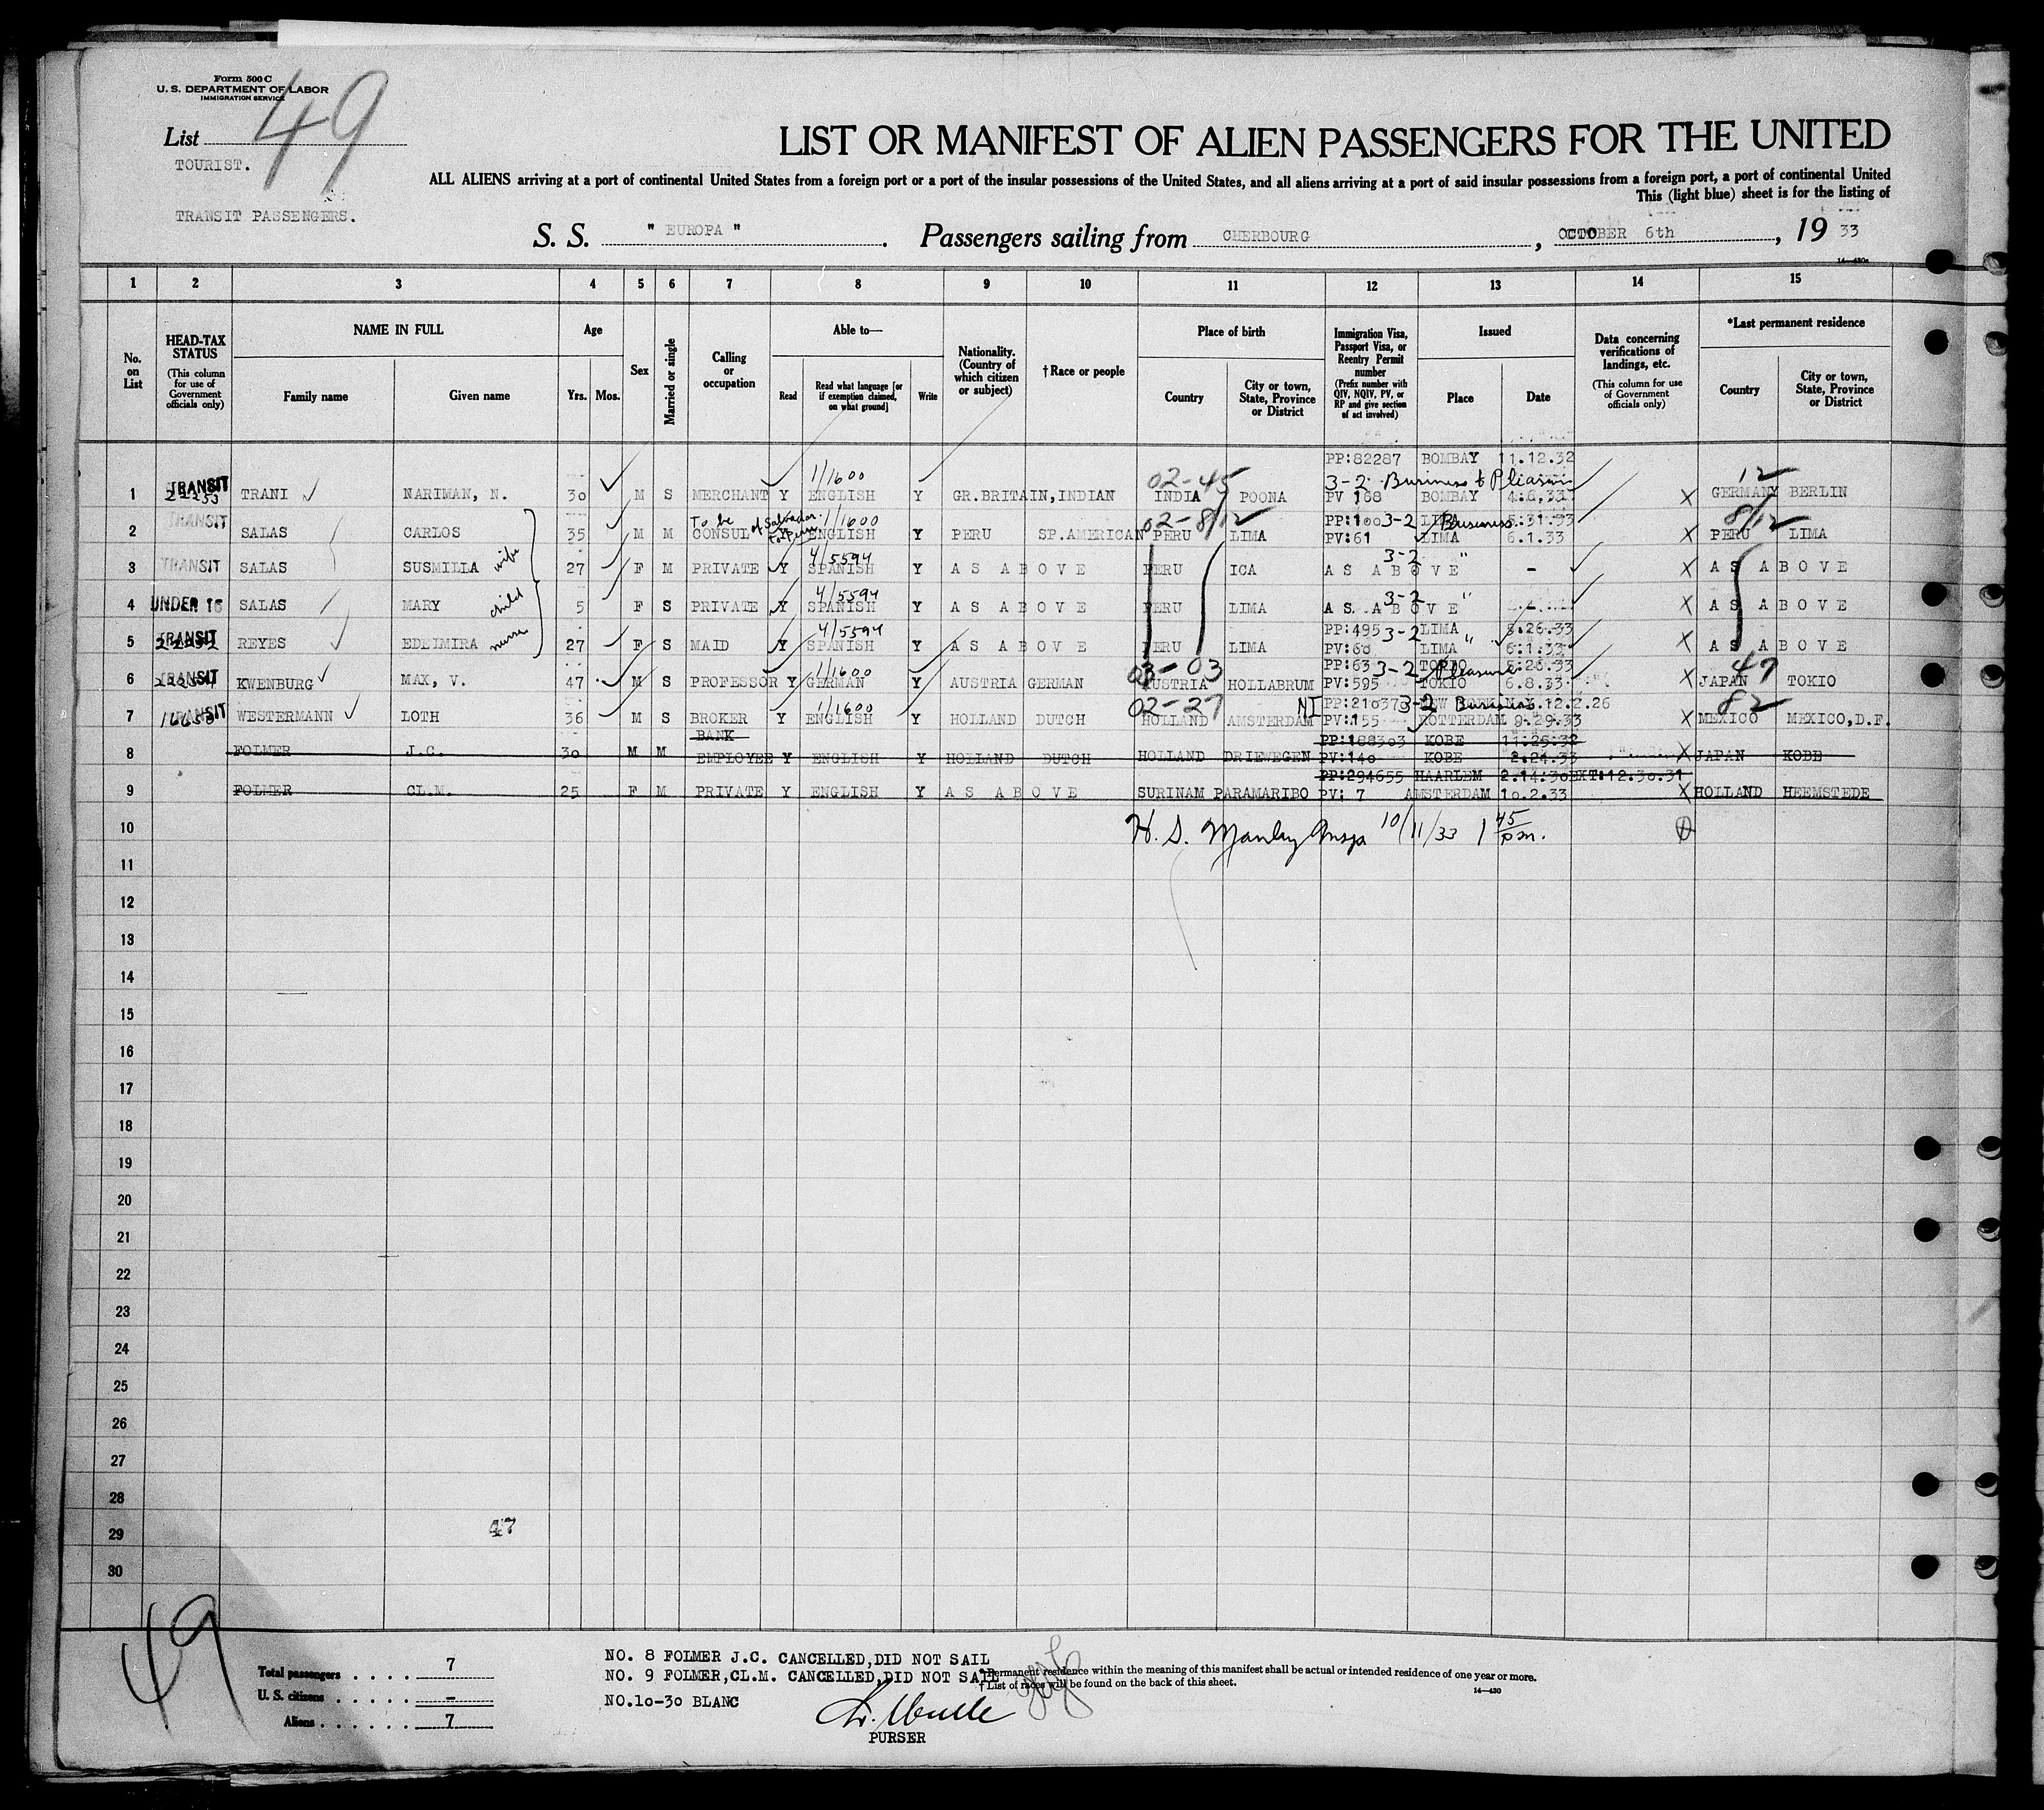 Form 500 C
U. S. DEPARTMENT OF LABOR
IMMIGRATION SERVICE
List 49
TOURIST.
TRANSIT PASSENGERS.
LIST OR MANIFEST OF ALIEN PASSENGERS FOR THE UNITED
ALL ALIENS arriving at a port of continental United States from a foreign port or a port of the insular possessions of the United States, and all aliens arriving at a port of said insular possessions from a foreign port, a port of continental United
This (light blue) sheet is for the listing of
S. S. " EUROPA " . Passengers sailing from CHERBOURG , OCTOBER 6th , 19 33
14—430a
1 2 3 4 5 6 7 8 9 10 11 12 13 14 15
No. on List
HEAD-TAX STATUS (This column for use of Government officials only)
NAME IN FULL
Family name Given name
Age
Yrs. Mos.
Sex
Married or single
Calling or occupation
Able to—
Read Read what language [or if exemption claimed, on what ground] Write
Nationality. (Country of which citizen or subject)
†Race or people
Place of birth
Country City or town, State, Province or District
Immigration Visa, Passport Visa, or Reentry Permit number (Prefix number with QIV, NQIV, PV, or RP and give section of act involved)
Issued
Place Date
Data concerning verifications of landings, etc. (This column for use of Government officials only)
*Last permanent residence
Country City or town, State, Province or District
1/1600 02-45 PP:82287 BOMBAY 11.12.32 12
3-2 Business & Pleasure
1 TRANSIT TRANI NARIMAN, N. 30 M S MERCHANT Y ENGLISH Y GR.BRITAIN,INDIAN INDIA POONA PV 168 BOMBAY 4.6.33 X GERMANY BERLIN
To be of Salvador to Peru 1/1600 02-8/12 PP:100 3-2 LIMA Business 5.31.33 8/12
2 TRANSIT SALAS CARLOS 35 M M CONSUL Y ENGLISH Y PERU SP.AMERICAN PERU LIMA PV:61 LIMA 6.1.33 X PERU LIMA
4/5594 3-2 "
3 TRANSIT SALAS SUSMILLA wife 27 F M PRIVATE Y SPANISH Y AS ABOVE PERU ICA AS ABOVE - X AS ABOVE
4/5594 3-2 "
4 UNDER 16 SALAS MARY child 5 F S PRIVATE Y SPANISH Y AS ABOVE PERU LIMA AS ABOVE X AS ABOVE
4/5594 PP:495 3-2 LIMA " 5.26.33
5 TRANSIT REYES EDELMIRA nurse 27 F S MAID Y SPANISH Y AS ABOVE PERU LIMA PV:60 LIMA 6.1.33 X AS ABOVE
1/1600 03-03 PP:63 3-2 TOKIO Pleasure 5.26.33 47
6 TRANSIT KWENBURG MAX, V. 47 M S PROFESSOR Y GERMAN Y AUSTRIA GERMAN AUSTRIA HOLLABRUM PV:595 TOKIO 6.8.33 X JAPAN TOKIO
1/1600 02-27 NI PP:21037 3-2 Business 12.2.26 82
7 TRANSIT WESTERMANN LOTH 36 M S BROKER Y ENGLISH Y HOLLAND DUTCH HOLLAND AMSTERDAM PV:155 ROTTERDAM 9.29.33 X MEXICO MEXICO,D.F.
BANK PP:188303 KOBE 11.25.32
8 FOLMER J.C. 30 M M EMPLOYEE Y ENGLISH Y HOLLAND DUTCH HOLLAND DRIEWEGEN PV:140 KOBE 2.24.33 X JAPAN KOBE
PP:294655 HAARLEM 2.14.30 EXT:12.30.31
9 FOLMER CL.M. 25 F M PRIVATE Y ENGLISH Y AS ABOVE SURINAM PARAMARIBO PV: 7 AMSTERDAM 10.2.33 X HOLLAND HEEMSTEDE
10 H. S. Manley Insp 10/11/33 1 45 pm.
11
12
13
14
15
16
17
18
19
20
21
22
23
24
25
26
27
28
29 47
30
49
Total passengers . . . . 7
U. S. citizens . . . . . -
Aliens . . . . . . 7
NO. 8 FOLMER J.C. CANCELLED,DID NOT SAIL
NO. 9 FOLMER,CL.M. CANCELLED,DID NOT SAIL
NO.10-30 BLANC
PURSER
*Permanent residence within the meaning of this manifest shall be actual or intended residence of one year or more.
† List of races will be found on the back of this sheet.
14—430